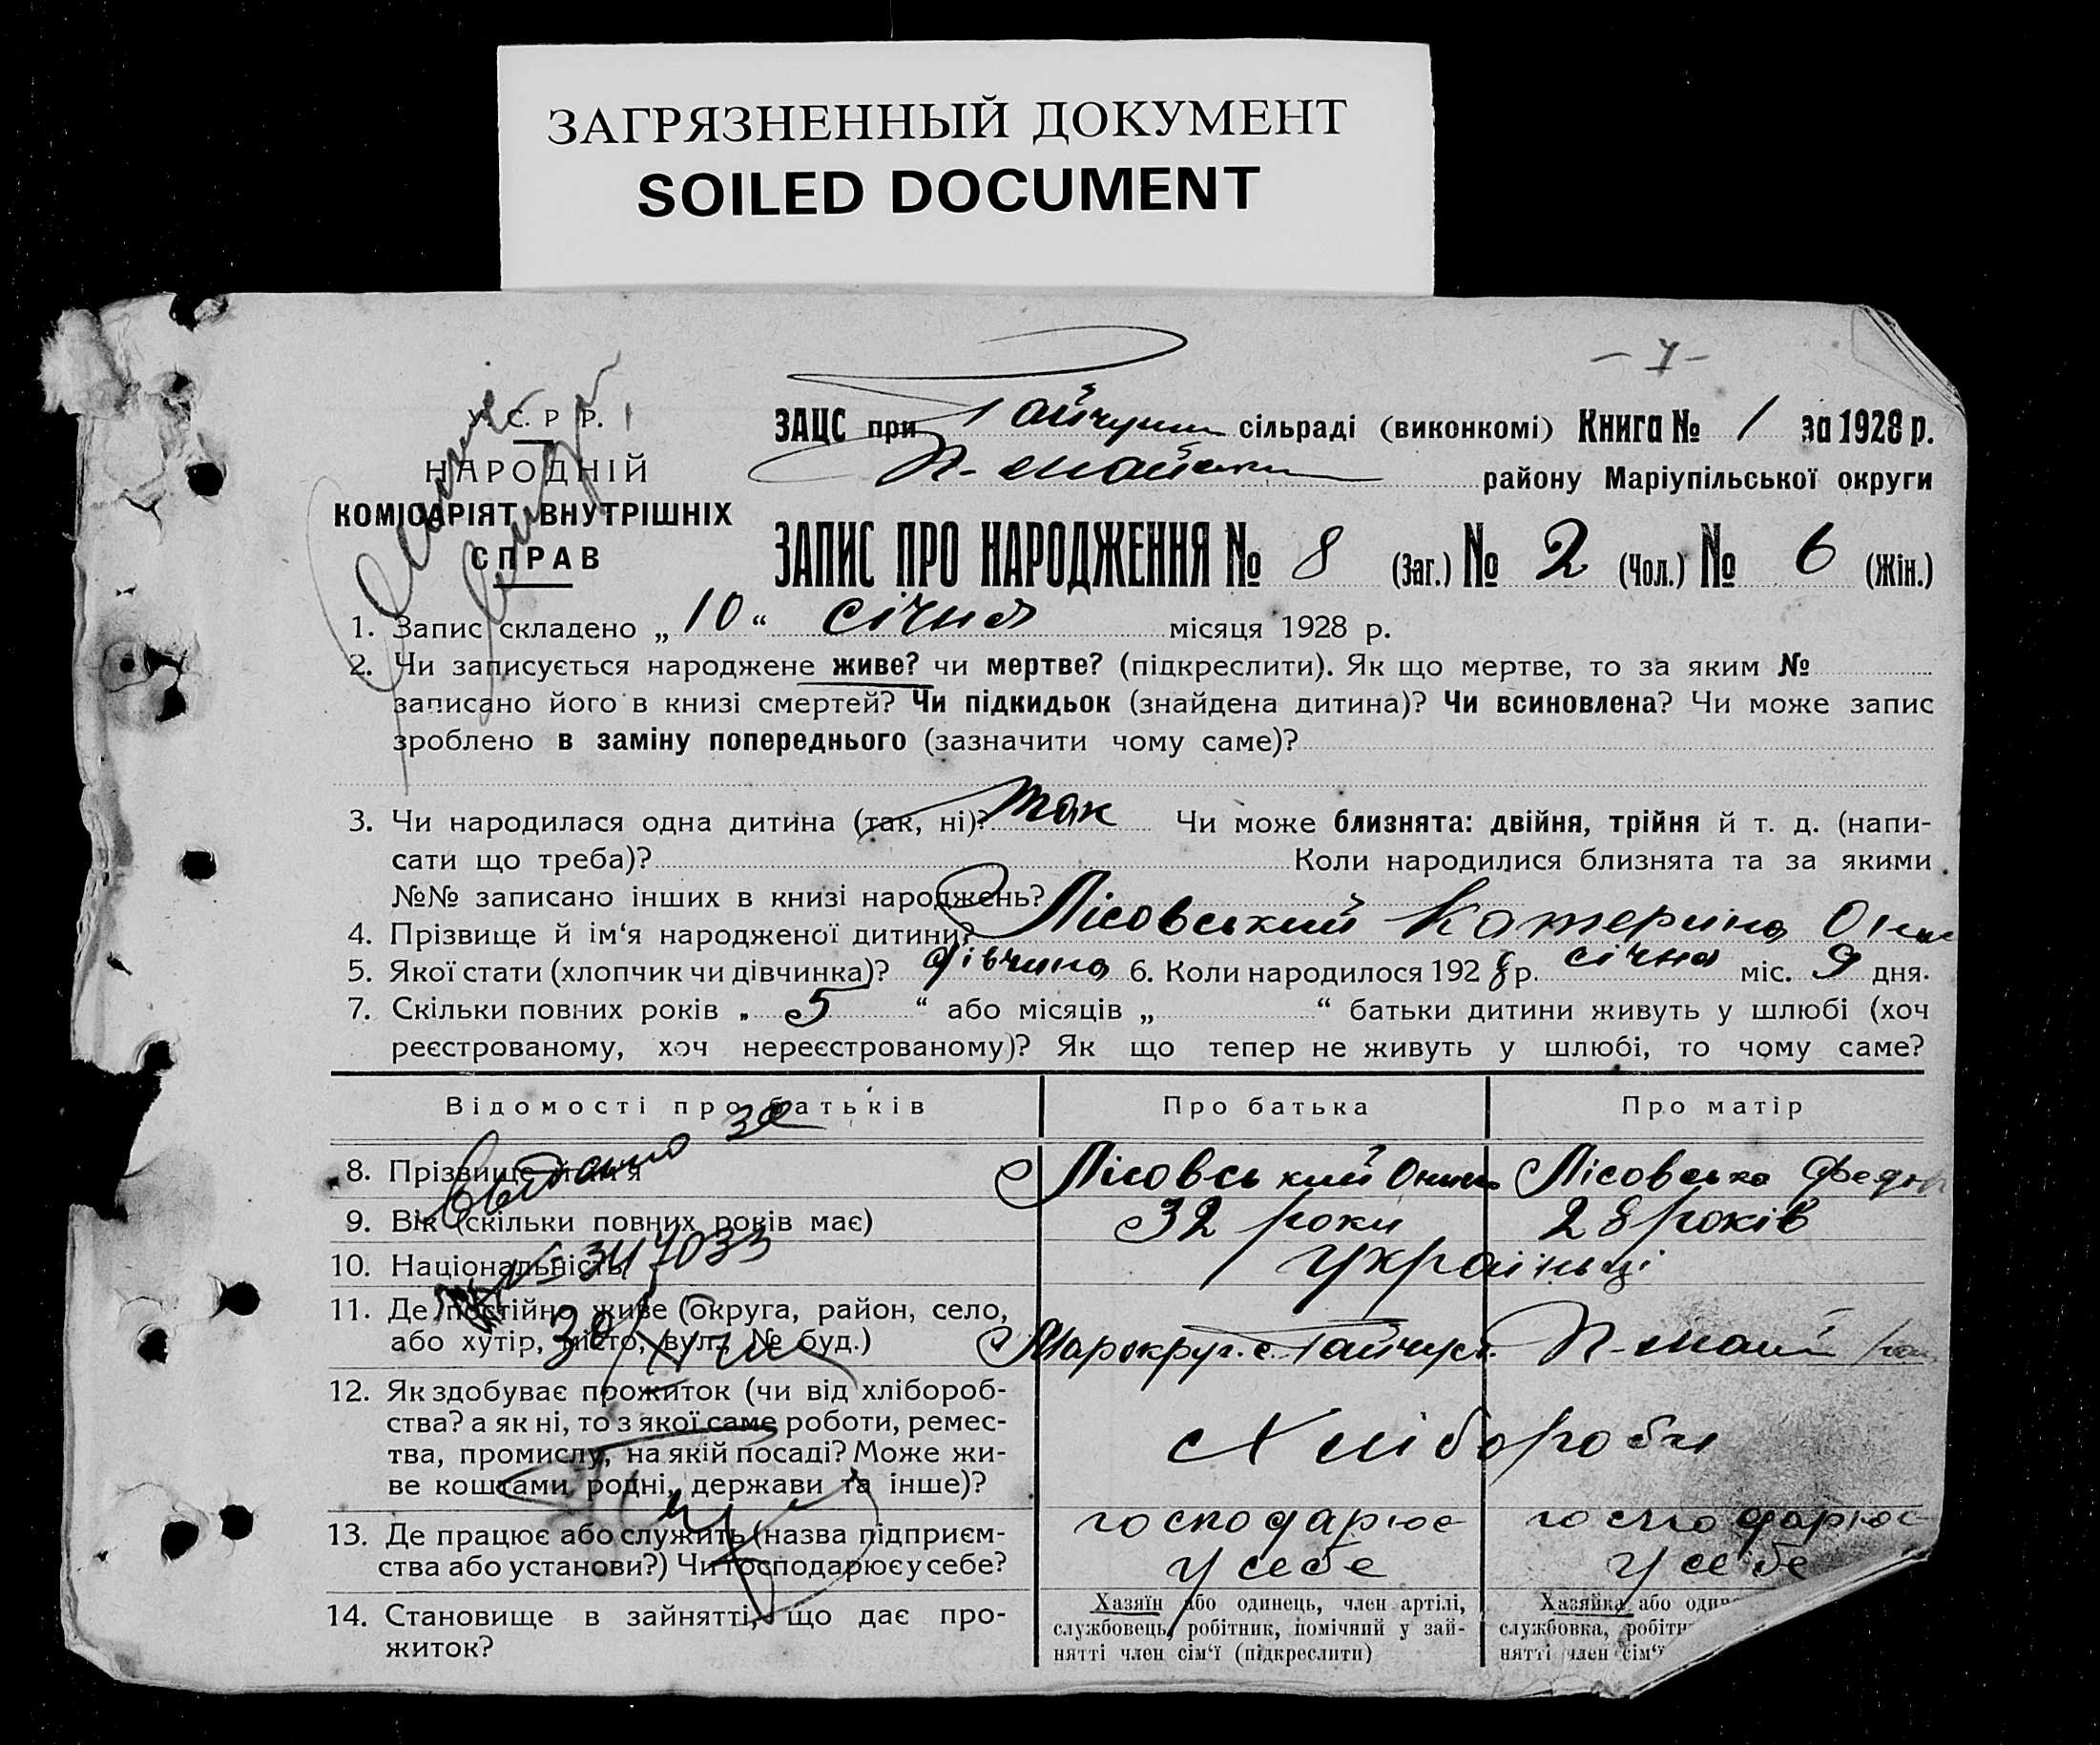 ЗАГРЯЗНЕННЫЙ ДОКУМЕНТ
SOILED DOCUMENT
– 7 –
У. С. Р. Р.
НАРОДНІЙ
КОМІСАРІЯТ ВНУТРІШНІХ
СПРАВ
ЗАЦС при Гайчул сільраді (виконкомі) Книга № 1 за 1928 р.
П-майськ району Маріупільської округи
ЗАПИС ПРО НАРОДЖЕННЯ № 8 (Заг.) № 2 (Чол.) № 6 (Жін.)
1. Запис складено „ 10 “ січня місяця 1928 р.
2. Чи записується народжене живе? чи мертве? (підкреслити). Як що мертве, то за яким №
записано його в книзі смертей? Чи підкидьок (знайдена дитина)? Чи всиновлена? Чи може запис
зроблено в заміну попереднього (зазначити чому саме)?
3. Чи народилася одна дитина (так, ні)? так Чи може близнята: двійня, трійня й т. д. (напи-
сати що треба)? Коли народилися близнята та за якими
№№ записано інших в книзі народжень?
4. Прізвище й ім‘я народженої дитини? Лісовський Катерина
5. Якої стати (хлопчик чи дівчинка)? дівчина 6. Коли народилося 192 8 р. січня міс. 9 дня.
7. Скільки повних років „ 5 “ або місяців „ “ батьки дитини живуть у шлюбі (хоч
реєстрованому, хоч нереєстрованому)? Як що тепер не живуть у шлюбі, то чому саме?
Відомості про батьків Про батька Про матір
8. Прізвище й ім‘я Лісовський Лісовська
9. Вік (скільки повних років має) 32 роки 28 років
10. Національність українці
11. Де постійно живе (округа, район, село,
або хутір, місто, вул., № буд.) Марокруг. с. Гайчул. П-май
12. Як здобуває прожиток (чи від хлібороб-
ства? а як ні, то з якої саме роботи, ремес-
тва, промислу, на якій посаді? Може жи-
ве коштами родні, держави та інше)?
Хлібороби
13. Де працює або служить (назва підприєм- господарює господарює
ства або установи?) Чи господарює у себе? у себе у себе
14. Становище в зайнятті, що дає про-
житок?
Хазяїн або одинець, член артілі,
службовець, робітник, помічний у зай-
нятті член сім‘ї (підкреслити)
Хазяйка або один
службовка, робітн
нятті член сім‘ї
Выдано за
№ 317033